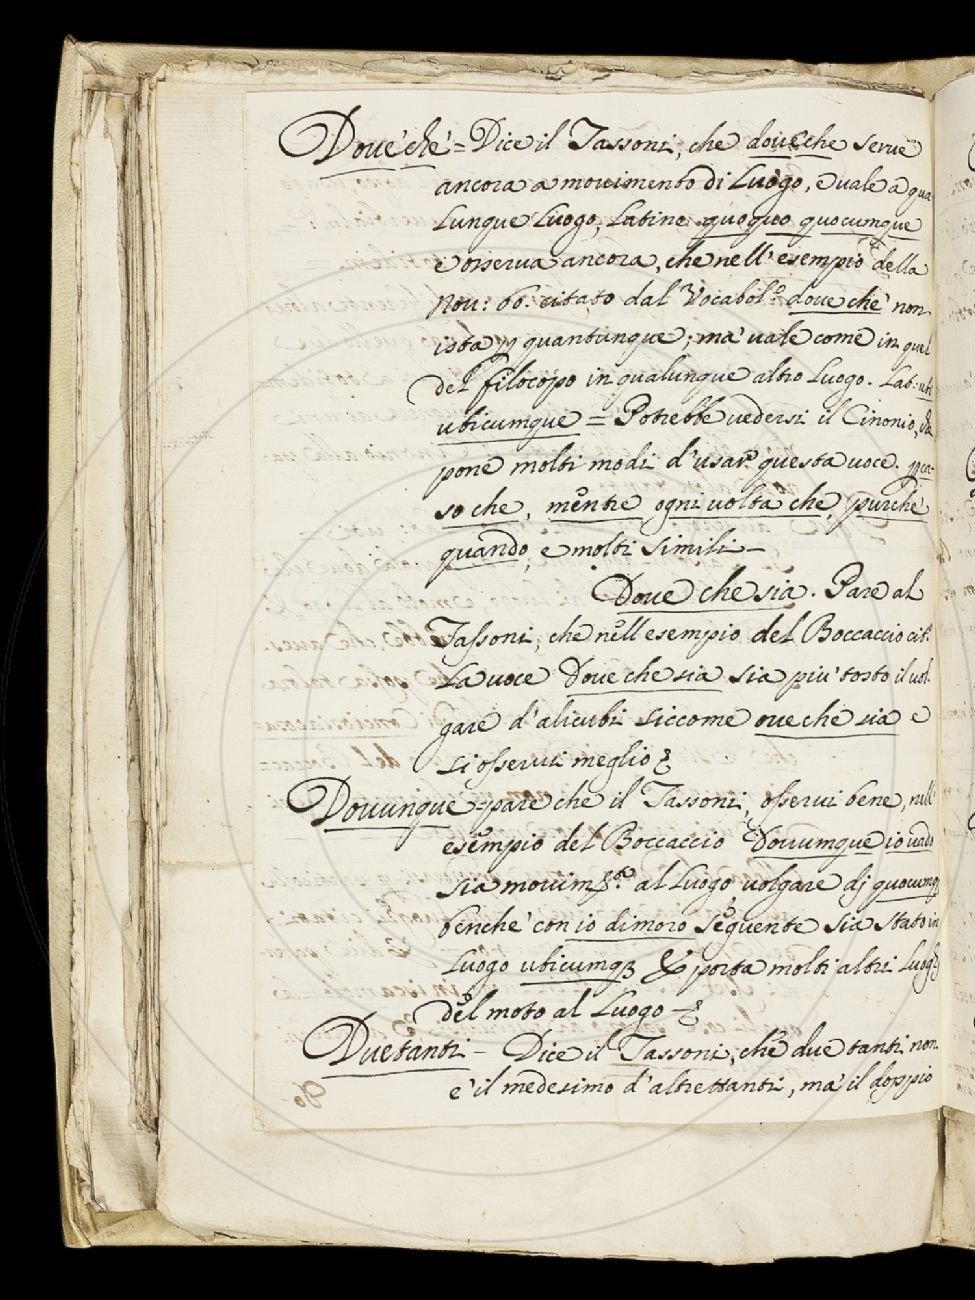 Doue che = Dice il Tassoni, che doue che serue
ancora a mouimento di Luogo, e uale a qua
lunque Luogo, Latino quoquo quocumque
e osserua ancora, che nell'esempio della
Nou: 66. citato dal Vocabol.º doue che non
ista p quantunque; mà uale come in quel
del filocopo in qualunque altro Luogo. Lat: ubi
ubicumque = Potrebbe uedersi il Cinonio, che
pone molti modi d'usar questa uoce. p ca-
so che, mentre ogni uolta che, purche
quando, e molti simili -
Doue che sia. Pare al
Tassoni, che nell esempio del Boccaccio cit.
La uoce Doue che sia sia più tosto il uol-
gare d'alicubi siccome oue che sia e
si osserui meglio
Douunque = pare che il Tassoni, osserui bene, nell'
esempio del Boccaccio Douumque io uado
sia mouim.º al Luogo uolgare dj quocumq
benche con io dimoro seguente sia stato in
Luogo ubicumq; porta molti altri Luogi
del moto al Luogo -
Duetanti - Dice il Tassoni, che due tanti non
e' il medesimo d'altrettanti, mà il doppio